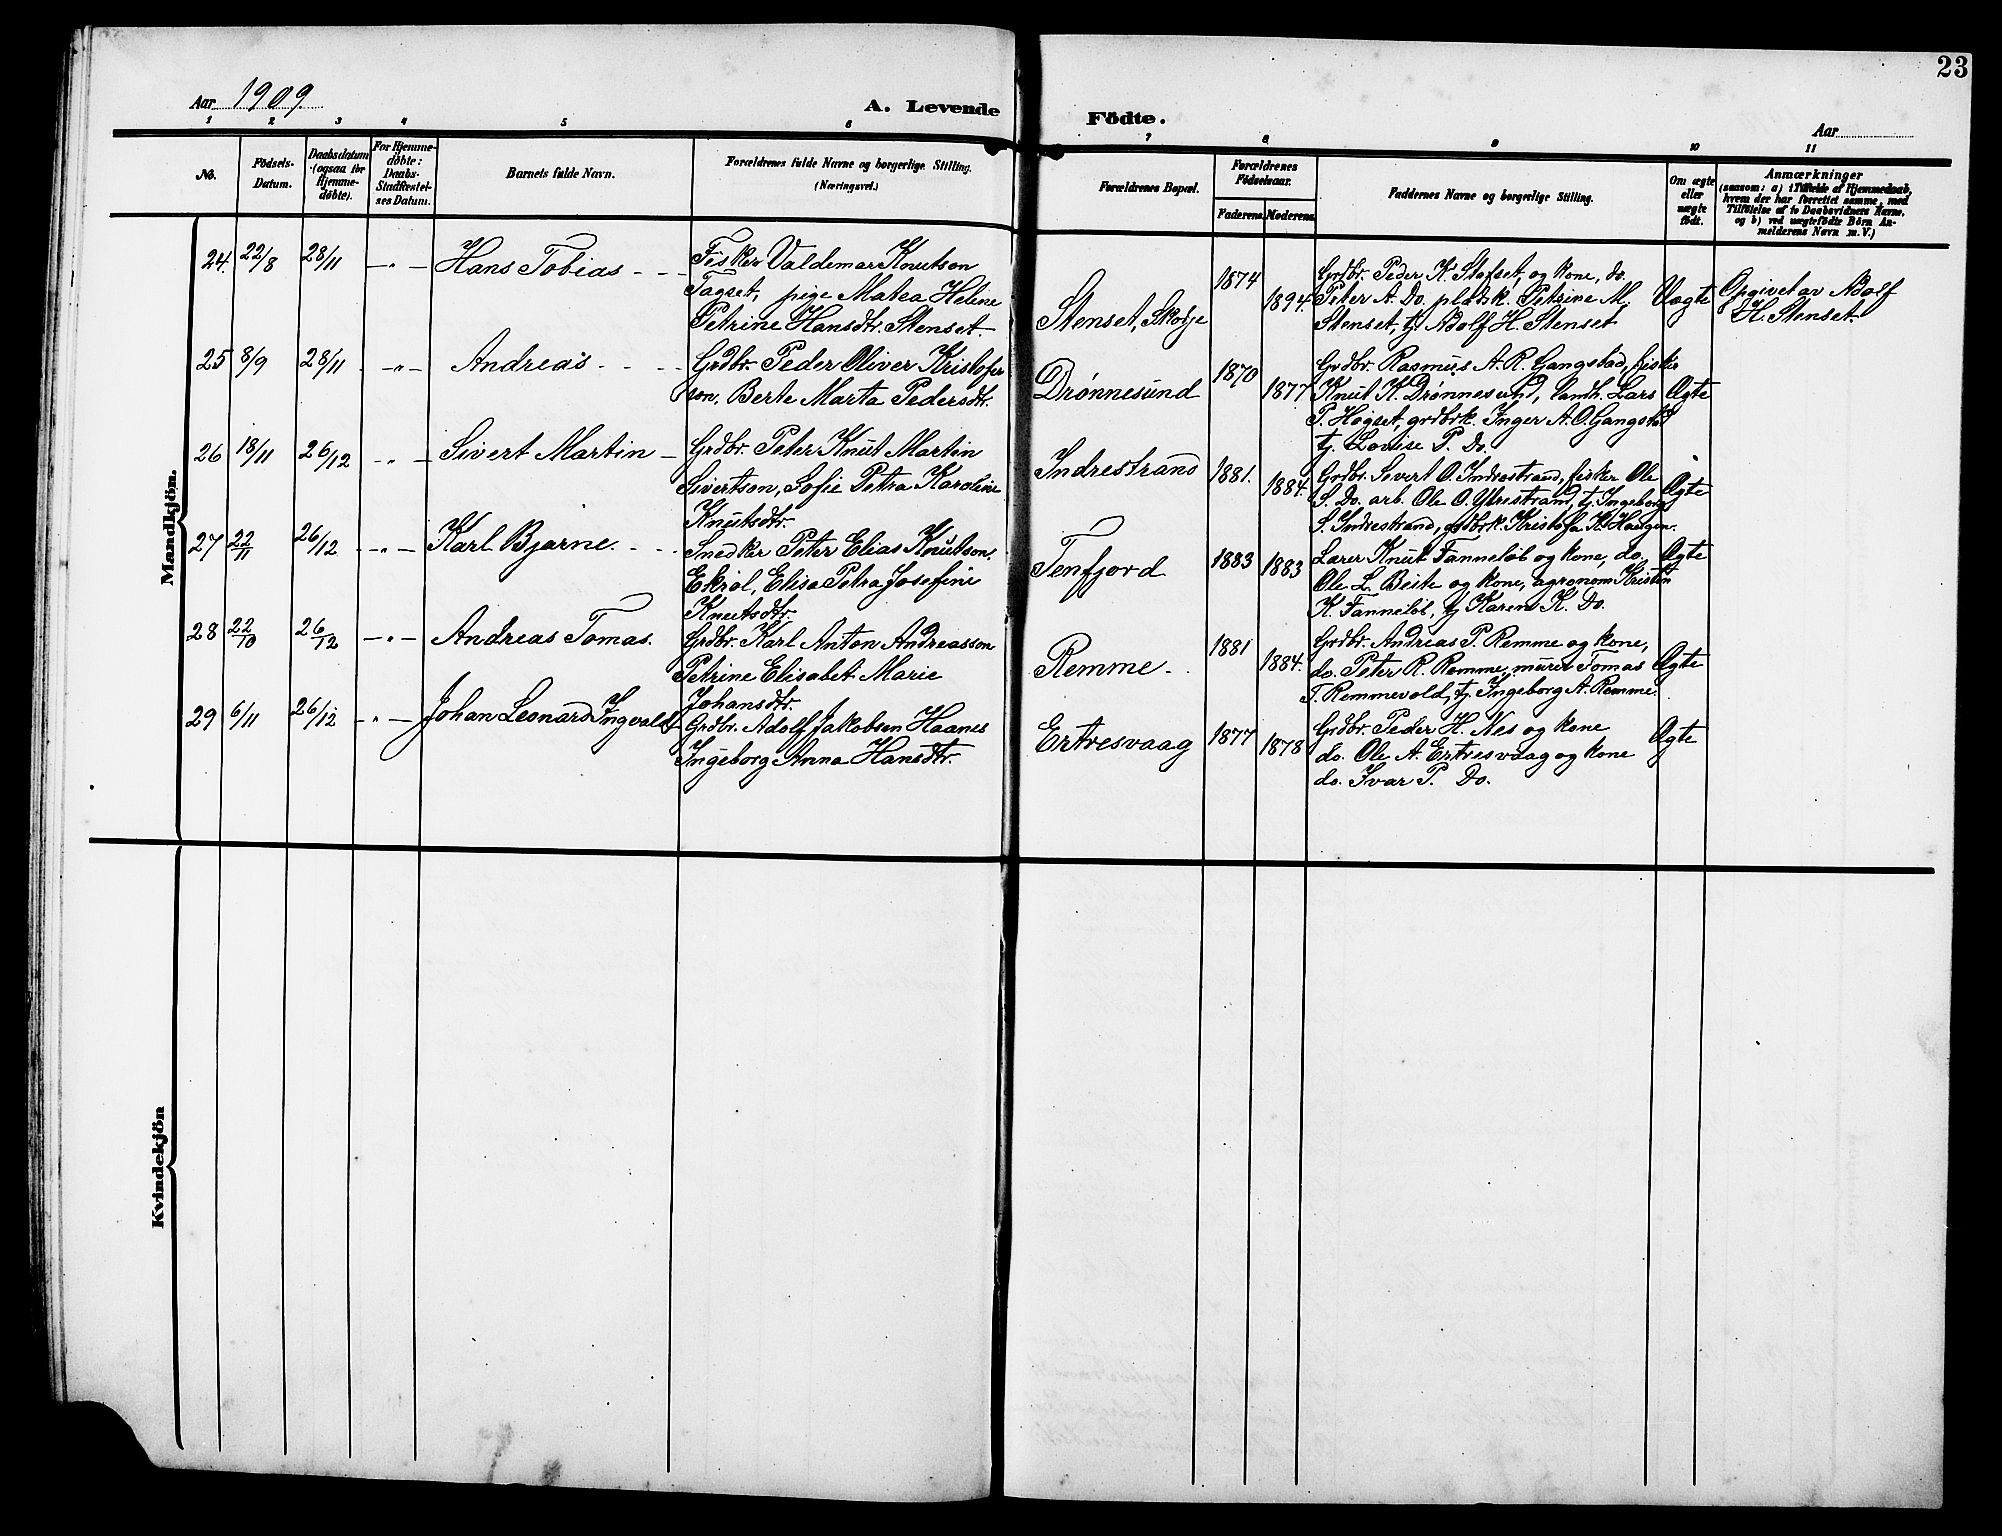 23
Aar 1909.
A. Levende
Födte.
Aar
1 2 3 4 5 6 7 8 9 10 11
No.
Födsels-
Datum.
Daabsdatum
(ogsaa for
Hjemme-
döbte).
For Hjemme-
döbte:
Daabs-
Stadfæstel-
ses Datum.
Barnets fulde Navn.
Forældrenes fulde Navne og borgerlige Stilling.
(Næringsvei.)
Forældrenes Bopæl.
Forældrenes
Födselsaar.
Faderens. Moderens.
Faddernes Navne og borgerlige Stilling.
Om ægte
eller
uægte
födt.
Anmærkninger
(saasom: a) i Tilfælde af Hjemmedaab,
hvem der har forrettet samme, med
Tilföielse af to Daabsvidners Navne,
og b) ved uægtefödte Börn An-
melderens Navn m. V.)
Mandkjön.
24. 22/8 28/11 -"- Hans Tobias
Fisker Valdemar Knutson
Tagset, pige Matea Helene
Petrine Hansdtr. Stenset
Stenset, Skodje
1874
1894.
Grdbr. Peder K. Stafset, og kone, do.
Peter A. Do. plædsk. Petrine M.
Stenset, tj. Adolf H. Stenset
Uægte
Opgivet av Adolf
H. Stenset.
25 8/9 28/11 -"- Andreas
Grdbr. Peder Oliver Kristofer
son, Berte Marta Pedersdtr.
Drønnesund
1870
1877
Grdbr. Rasmus A. R. Gangstad, fisker
Knut K. Drønnesund, landh. Lars
P. Høgset, grdbrk. Inger A. O. Gangstad
tj. Lovise P. Do.
Ægte
26 18/11 26/12 -"- Sivert Martin
Grdbr. Peter Knut Martin
Sivertson, Sofie Petra Karoline
Knutsdtr.
Indrestrand
1881.
1884.
Grdbr. Sivert O. Indrestrand, fisker Ole
S. Do. arb. Ole O. Ytrestrand, tj. Ingeborg
S. Indrestrand, grdbrk. Kristofa K. Haugen.
Ægte
27 22/11 26/12 -"- Karl Bjarne.
Snedker Peter Elias Knutson
Ekrol, Elisa Petra Josefine
Knutsdtr.
Tenfjord
1883 1883
Lærer Knut Fanneløb og kone, do.
Ole L. Beite og kone, agronom Kristen
K. Fanneløb, tj. Karen K. Do.
Ægte
28 22/10 26/12 -"- Andreas Tomas.
Grdbr. Karl Anton Andreasson
Petrine Elisabet Marie
Johansdtr.
Remme
1881
1884.
Grdbr. Andreas P. Remme og kone,
do. Peter R. Remme, murer Tomas
T. Remmevold, tj. Ingeborg A. Remme.
Ægte
29 6/11 26/12 -"- Johan Leonard Ingvald
Grdbr. Adolf Jakobsen Haanes
Ingeborg Anna Hansdtr.
Ertresvaag
1877
1878
Grdbr. Peder H. Nes og kone
do. Ole A. Ertresvaag og kone
do. Ivar P. Do.
Ægte
Kvindekjön